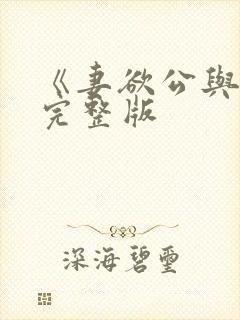 《妻欲公與
完整版
深海碧璽